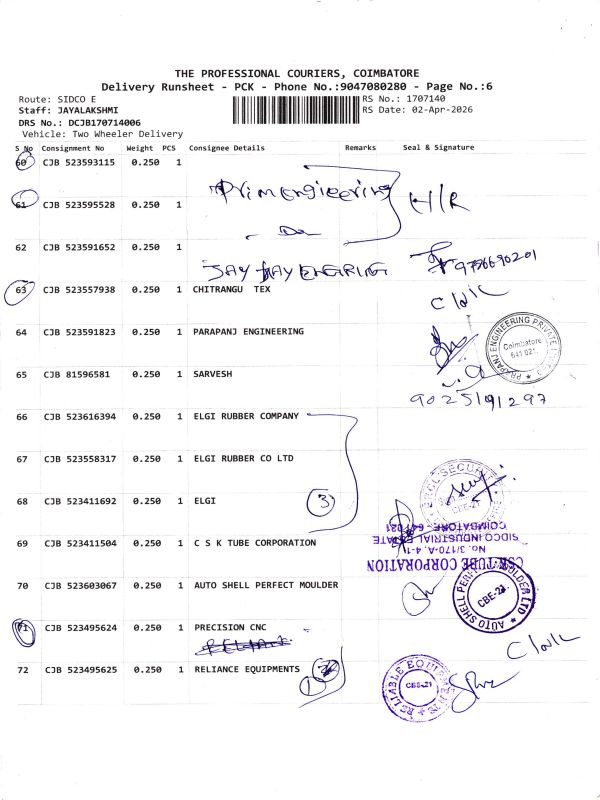 THE PROFESSIONAL COURIERS, COIMBATORE
Delivery Runsheet - PCK - Phone No.:9047080280 - Page No.:6
Route: SIDCO E
RS No.: 1707140
Staff: JAYALAKSHMI
RS Date: 02-Apr-2026
DRS No.: DCJB170714006
Vehicle: Two Wheeler Delivery
S No Consignment No Weight PCS Consignee Details Remarks Seal & Signature
60 CJB 523593115 0.250 1
61 CJB 523595528 0.250 1 H/R
62 CJB 523591652 0.250 1
JAY JAY
63 CJB 523557938 0.250 1 CHITRANGU TEX
64 CJB 523591823 0.250 1 PARAPANJ ENGINEERING
PRAPANJ ENGINEERING PRIVATE
Coimbatore
641 021.
65 CJB 81596581 0.250 1 SARVESH
9025191297
66 CJB 523616394 0.250 1 ELGI RUBBER COMPANY
67 CJB 523558317 0.250 1 ELGI RUBBER CO LTD
68 CJB 523411692 0.250 1 ELGI 3
SECURITY
CBE-21
69 CJB 523411504 0.250 1 C S K TUBE CORPORATION
CSK TUBE CORPORATION
No. 3/170-A, 4-1
SIDCO INDUSTRIAL ESTATE
COIMBATORE - 641 021
70 CJB 523603067 0.250 1 AUTO SHELL PERFECT MOULDER
AUTO SHELL PERFECT MOULDER LTD
CBE-21.
71 CJB 523495624 0.250 1 PRECISION CNC
72 CJB 523495625 0.250 1 RELIANCE EQUIPMENTS 1
RELIABLE EQUIPMENTS
CBE-21